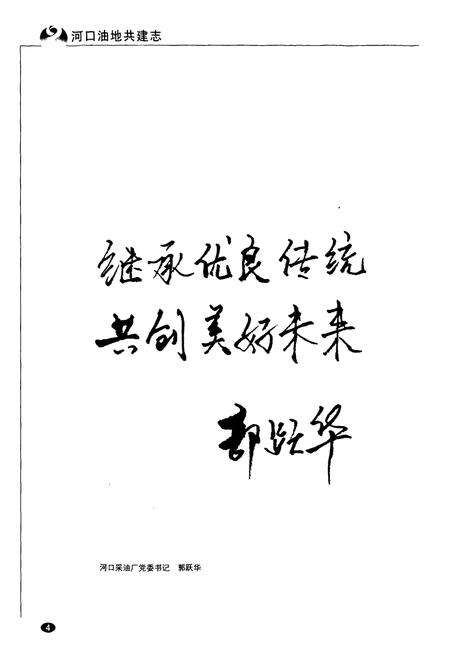 河口油地共建志
继承优良传统
共创美好未来
郭跃华
河口采油厂党委书记 郭跃华
4